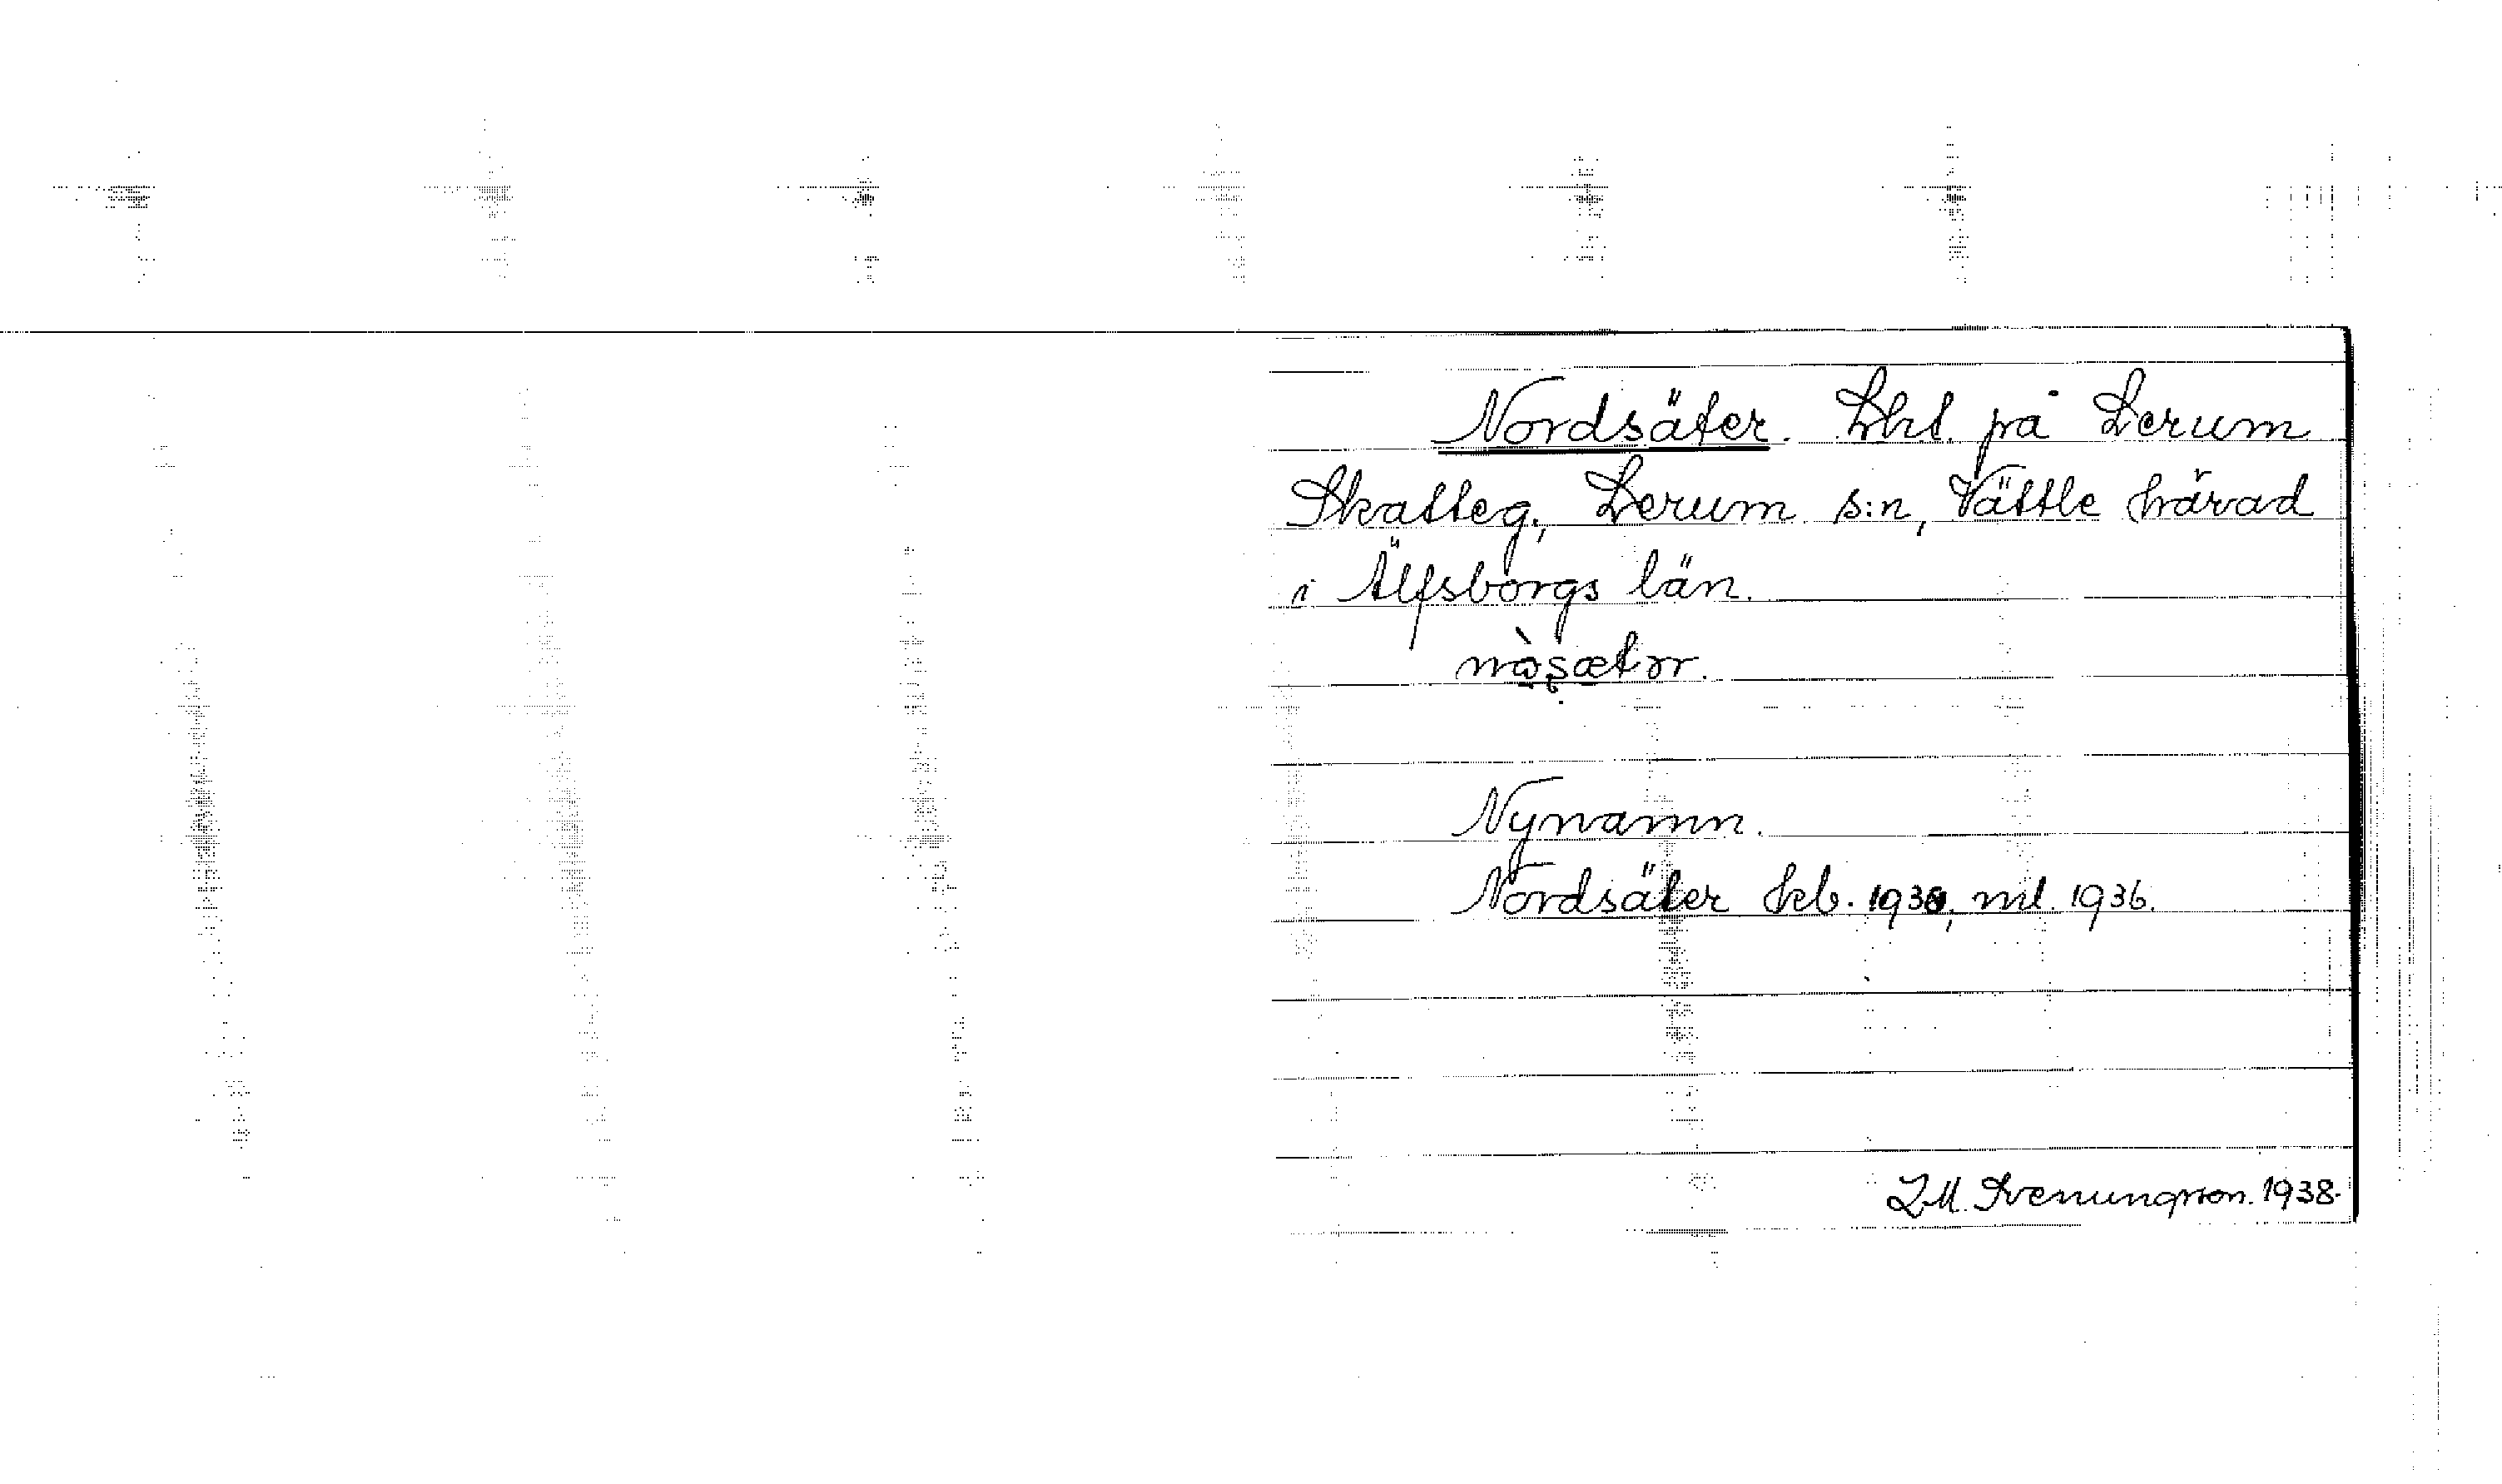 Nordsäter. Lht. på Lerum
Skatteg., Lerum s:n, Vättle härad
i Älfsborgs län.
Nynamn.
Nordsäter kb. 1938, ml. 1936.
L.M. Svenungsson. 1938.